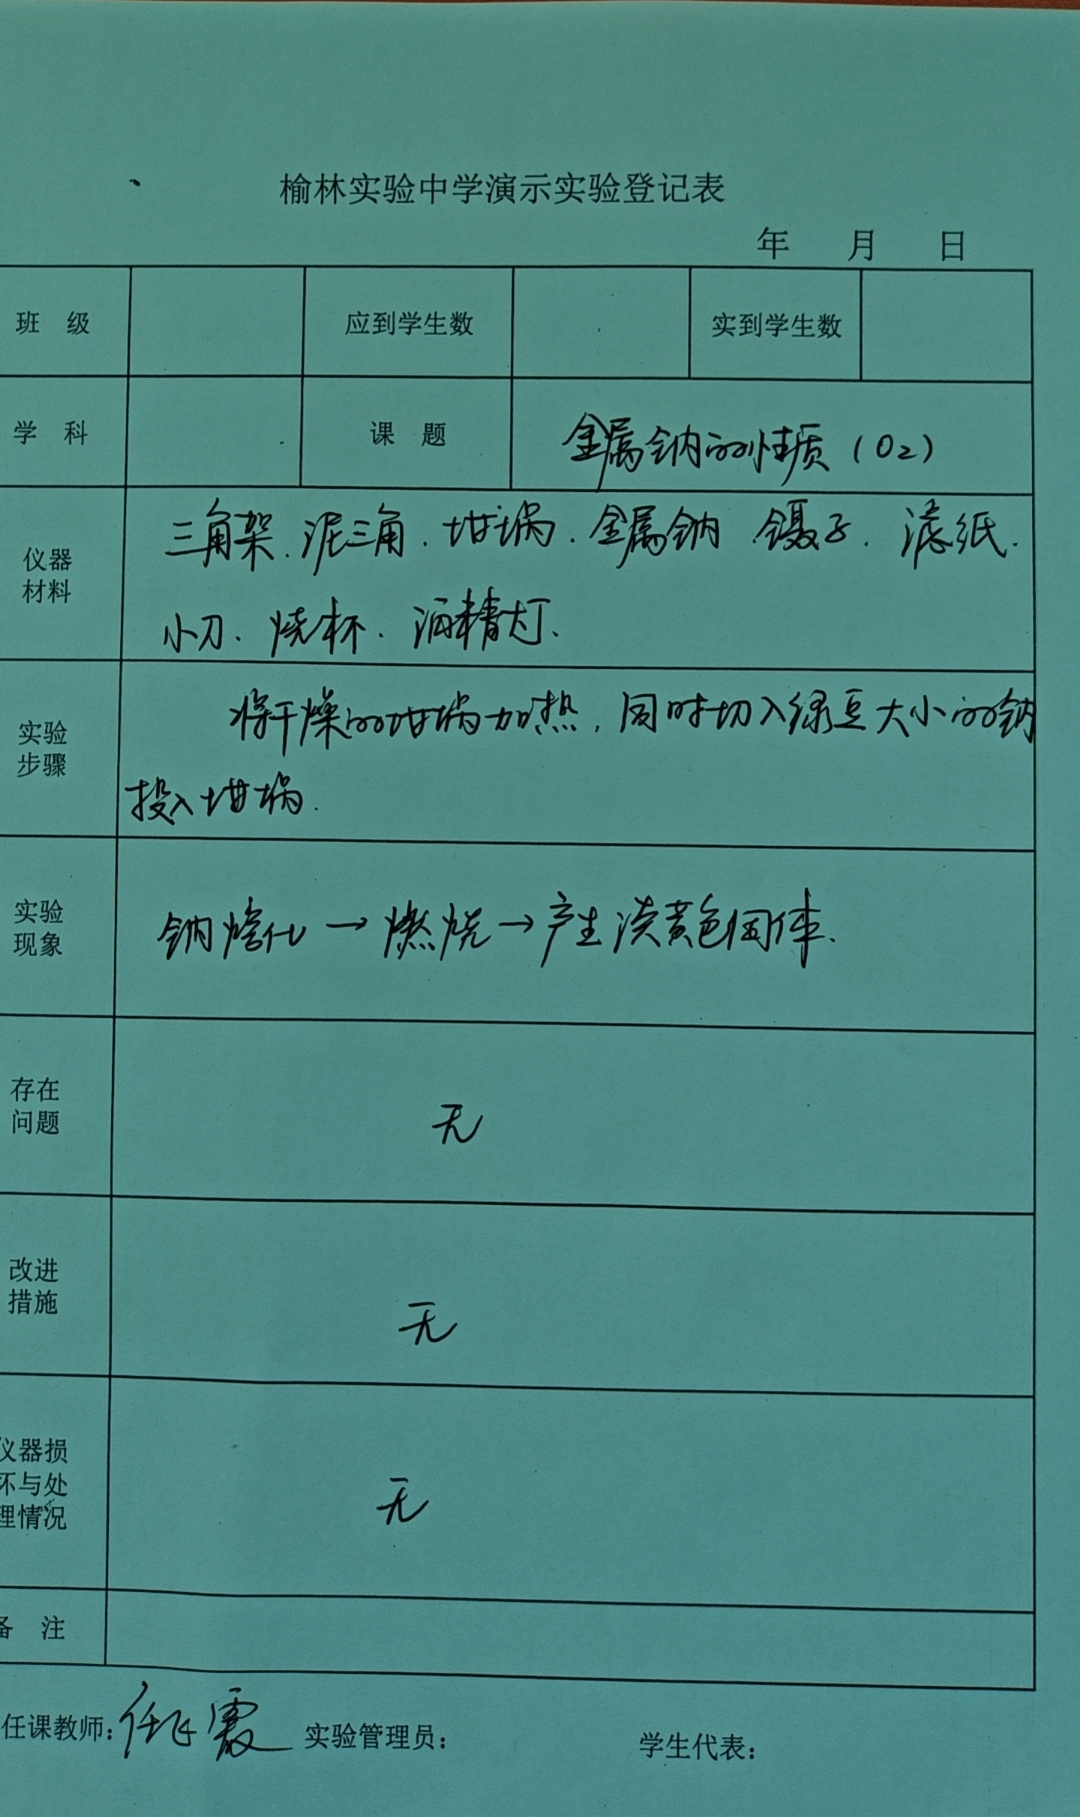 榆林实验中学演示实验登记表
年 月 日
班 级 应到学生数 实到学生数
学 科 课 题 金属钠的性质（O2）
仪器材料 三角架、泥三角、坩埚、金属钠、镊子、滤纸、
小刀、烧杯、酒精灯、
实验步骤 将干燥的坩埚加热，同时切入绿豆大小的钠
投入坩埚.
实验现象 钠熔化→燃烧→产生淡黄色固体.
存在问题 无
改进措施 无
仪器损坏与处理情况 无
备 注
任课教师： 实验管理员： 学生代表：